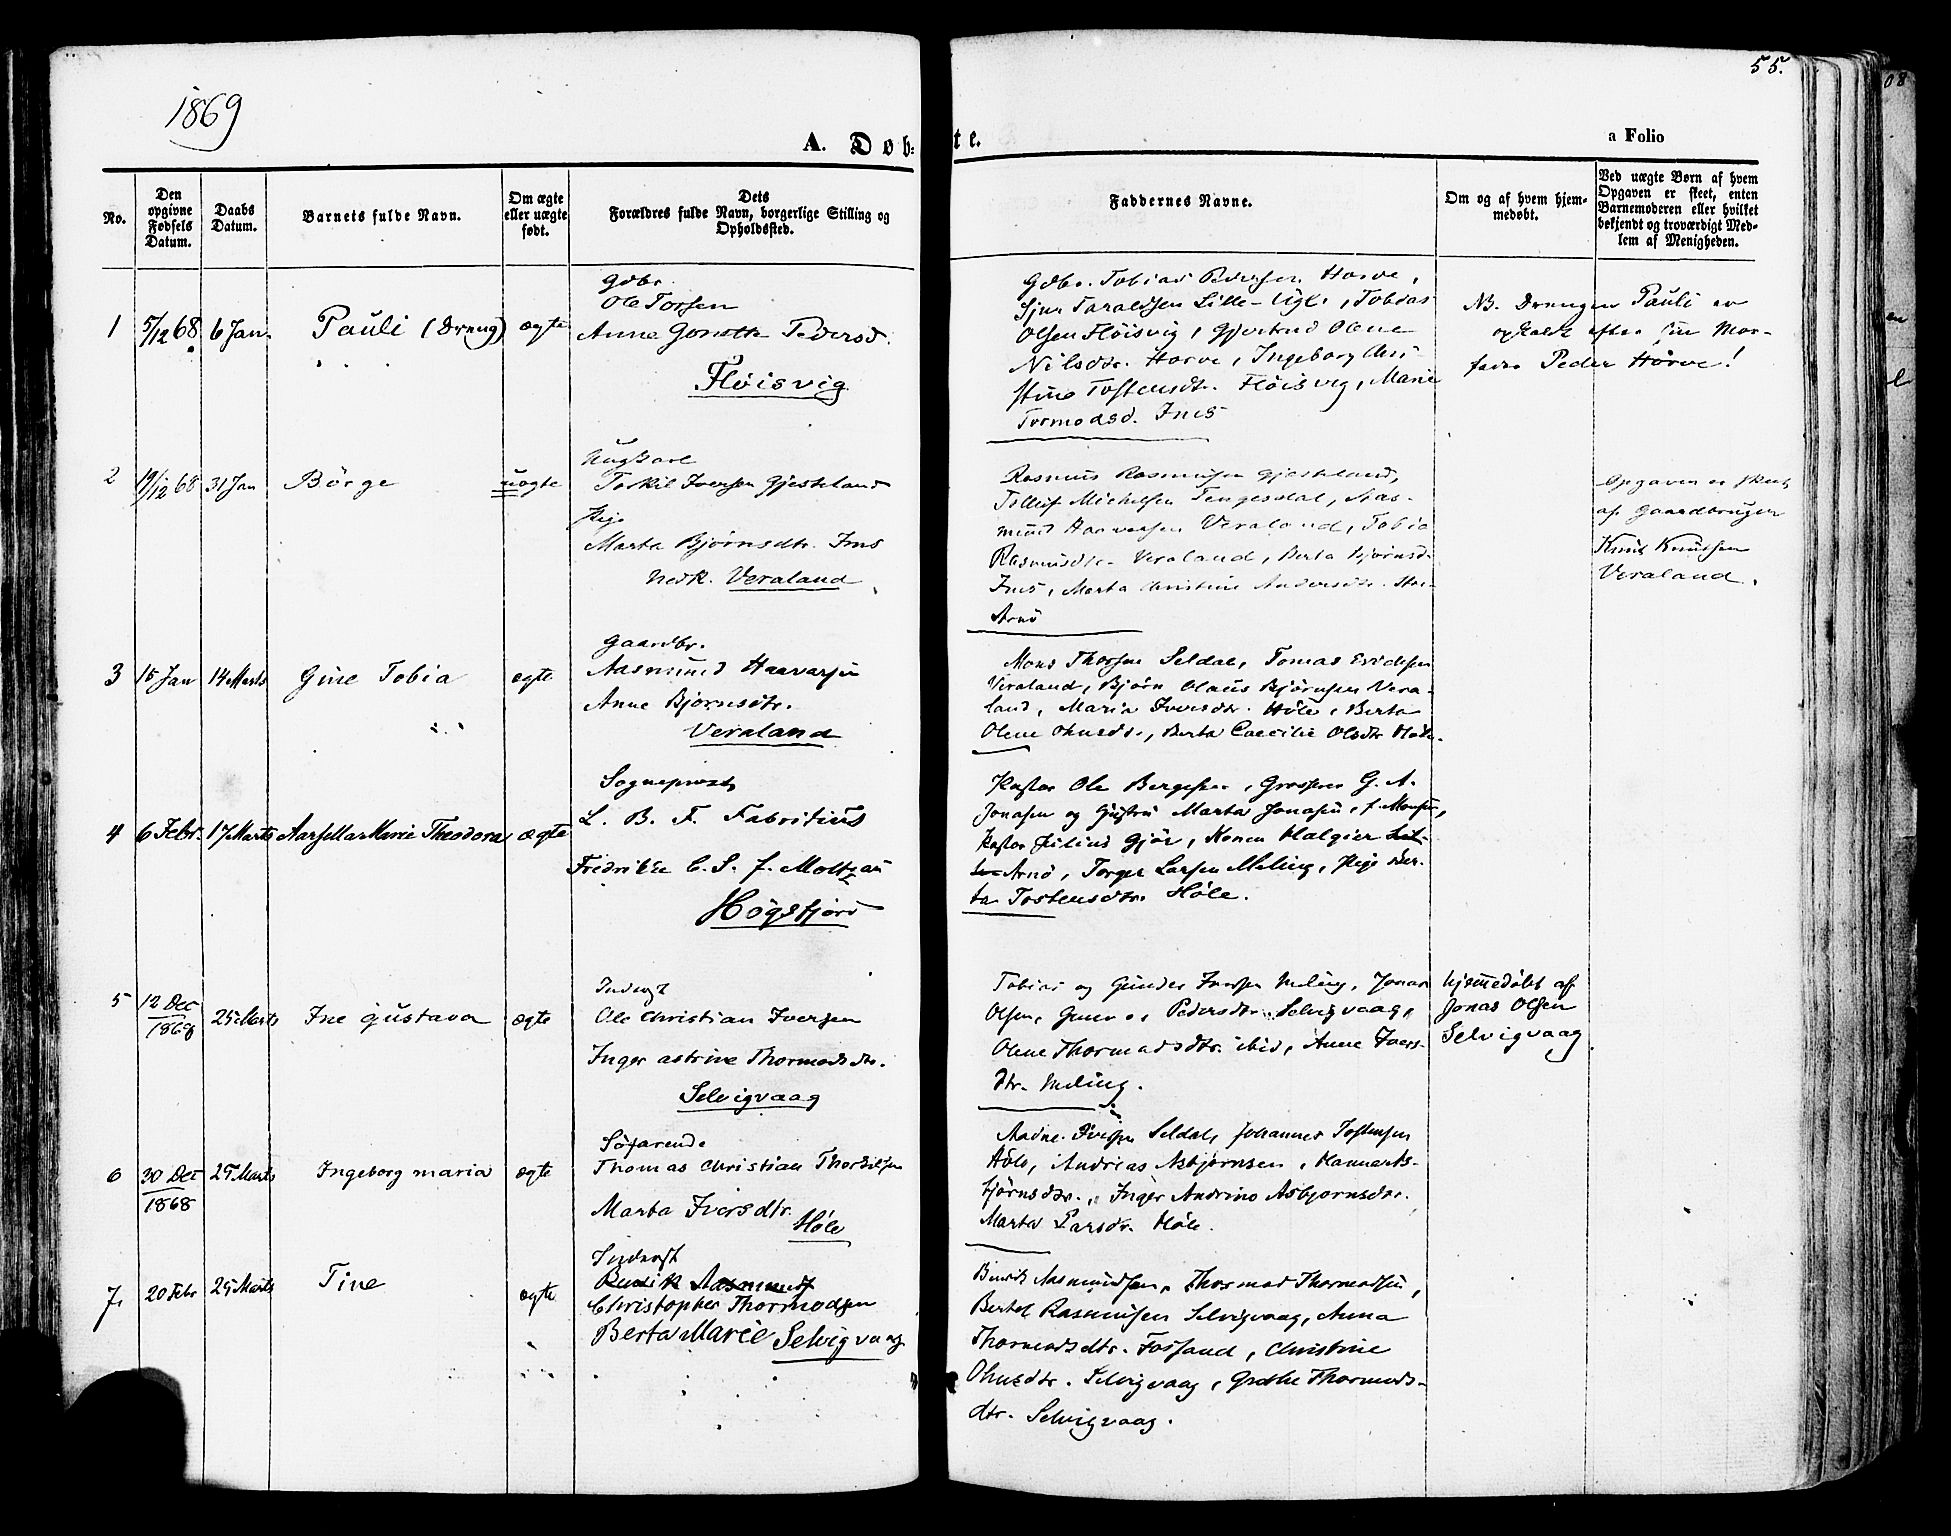 55.
1869
A. Døb-
te.
a Folio
No.
Den opgivne Fødsels Datum.
Daabs Datum.
Barnets fulde Navn.
Om ægte eller uægte født.
Dets Forældres fulde Navn, borgerlige Stilling og Opholdsted.
Faddernes Navne.
Om og af hvem hjem-
medøbt.
Ved uægte Børn af hvem
Opgaven er skeet, enten
Barnemoderen eller hvilket
bekjendt og troværdigt Med-
lem af Menigheden.
1 5/12 68 6 Jan. Pauli (Dreng) ægte
Gdbr.
Ole Torsen
Anne Pedersd.
Fløisvig
Gdbr. Tobias Pedersen Horve,
Sjur Taraldsen Lille- , Tobias
Olsen Fløisvig, Gjertrud Olene
Nilsdtr. Horve, Ingeborg Chri-
stine Tostensdtr. Fløisvig, Marie
Tormodsd. Ims
NB. Drengen Pauli er
opkaldt efter sin Mor-
fader Peder Horve!
2 19/12 68 31 Jan Börge uægte
Ungkarl
Torkil Iversen Gjesteland
Pige
Marta Bjørnsdtr. Ims
Nedr. Veraland
Rasmus Rasmusen Gjesteland,
Tollef Michelsen Tengesdal, Aas-
mund Haavarsen Veraland, Tobia
Rasmusdtr. Veraland, Berta Bjørnsd.
Ims, Marta Christine Andersdtr. Stor
Arnö
Opgaven er skeet
af Gaardbruger
Knud Knudsen
Veraland.
3 15 Jan 14 Marts Gine Tobia ægte
Gaardbr.
Aasmund Haavarsen
Anne Bjornsdtr.
Veraland
Mons Thorsen Seldal, Tomas
Veraland, Bjørn Olaus Bjørnsen Vera-
land, Maria Iversdtr. Høle, Berta
Olene , Berta Caecilie Olsdtr Høle.
4 6 Febr. 17 Marts Marie Theodora ægte
Sogneprest
L. B. F. Fabritius
Fredrikke C. S. f. Moltzau
Høgsfjord
Pastor Ole Bergesen, Grosserer G. A.
Jonasen og Hustru Marta Jonasen, f. Monsen,
Pastor Julius Gjör, Konen Malgier Lil-
le Arnö, Torger Larsen Meling, Pige Ber-
ta Tostensdtr. Høle.
5 12 Dec 1868 25 Marts Ine Gustava ægte
Inderst
Ole Christian Iversen
Inger astrine Thormodsdtr.
Selvigvaag
Tobias og Gunder Iversen Meling, Jonas
Olsen, Pedersdtr. Selvigvaag,
Olene Thormodsdtr. ibid, Anne Ivers-
dtr. Meling.
hjemmedøbt af
Jonas Olsen
Selvigvaag.
6 30 Dec 1868 25 Marts Ingeborg maria ægte
Søfarende
Thomas Christian Thorkilsen
Marta Iversdtr.
Høle
Aadne Iversen Seldal, Johannes Tostensen
Høle, Andreas Asbjørnsen,
bjørnsdtr., Inger Andrine Asbjornsdtr.
Marta Larsdr. Høle.
7. 20 Febr 25 Marts Tine ægte
Inderst
Christopher Thormodsen
Berta Marie Selvigvaag
Aasmundsen, Thormod Thormodsen,
Bertel Rasmusen Selvigvaag, Anna
Thormodsdtr. Fossand, Christine
Ohnsdtr. Selvigvaag, Grethe Thormods-
dtr. Selvigvaag.